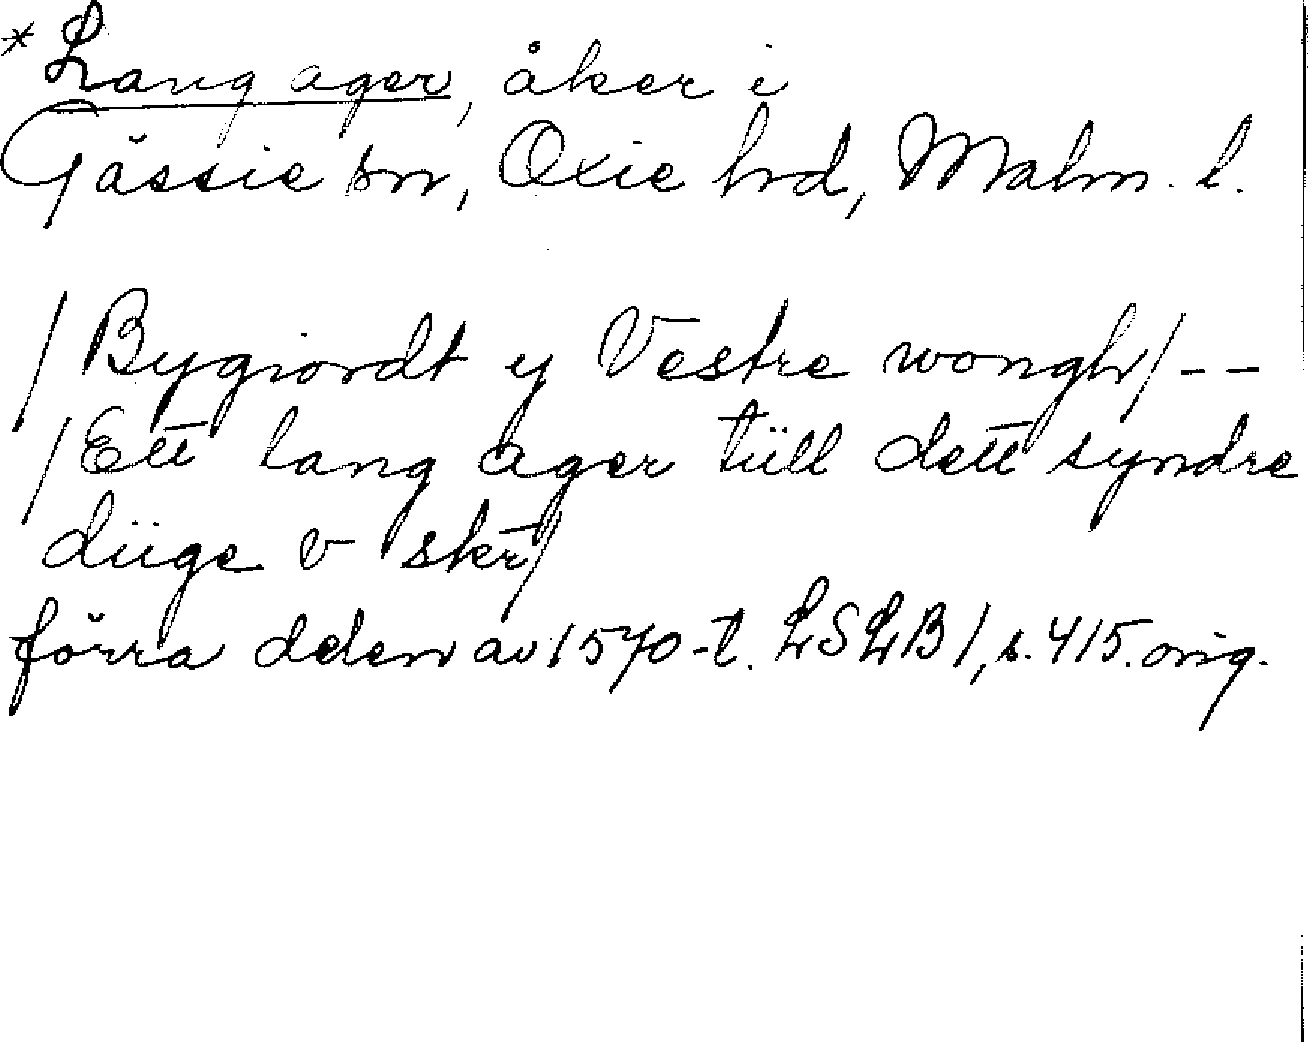 *Lang ager, åker i
Gässie sn, Oxie hd, Malm. l.
/Bygiordt y Vestre wongh/--
/Ett lang ager tüll dett syndre
düge v skr̄/
förra delen av 1570-t. LSLB 1, s. 415. orig.